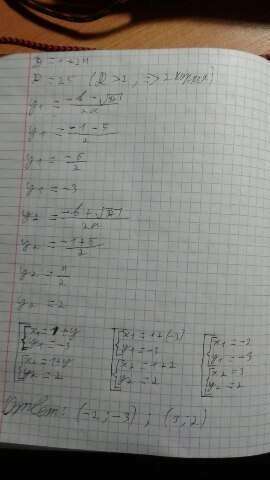 D = 1+24
D = 25 (D > 1, => 2 корня)
y₁ = (-b - √D) / 2a
y₁ = (-1 - 5) / 2
y₁ = -6 / 2
y₁ = -3
y₂ = (-b + √D) / 2a
y₂ = (-1+5) / 2
y₂ = 4 / 2
y₂ = 2
x₁ = 1+y x₁ = 1+(-3) x₁ = -2
y₁ = -3 y₁ = -3 y₁ = -3
x₂ = 1+y x₂ = 1+2 x₂ = 3
y₂ = 2 y₂ = 2 y₂ = 2
Ответ: (-2; -3) ; (3; 2)